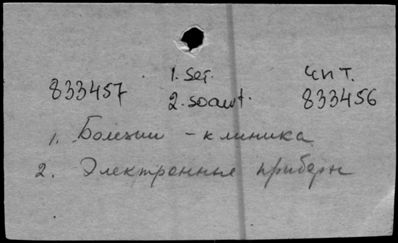 833457 1. ser. чит.
2. soavt. 833456
1. Болезни - клиника
2. Электронные приборы